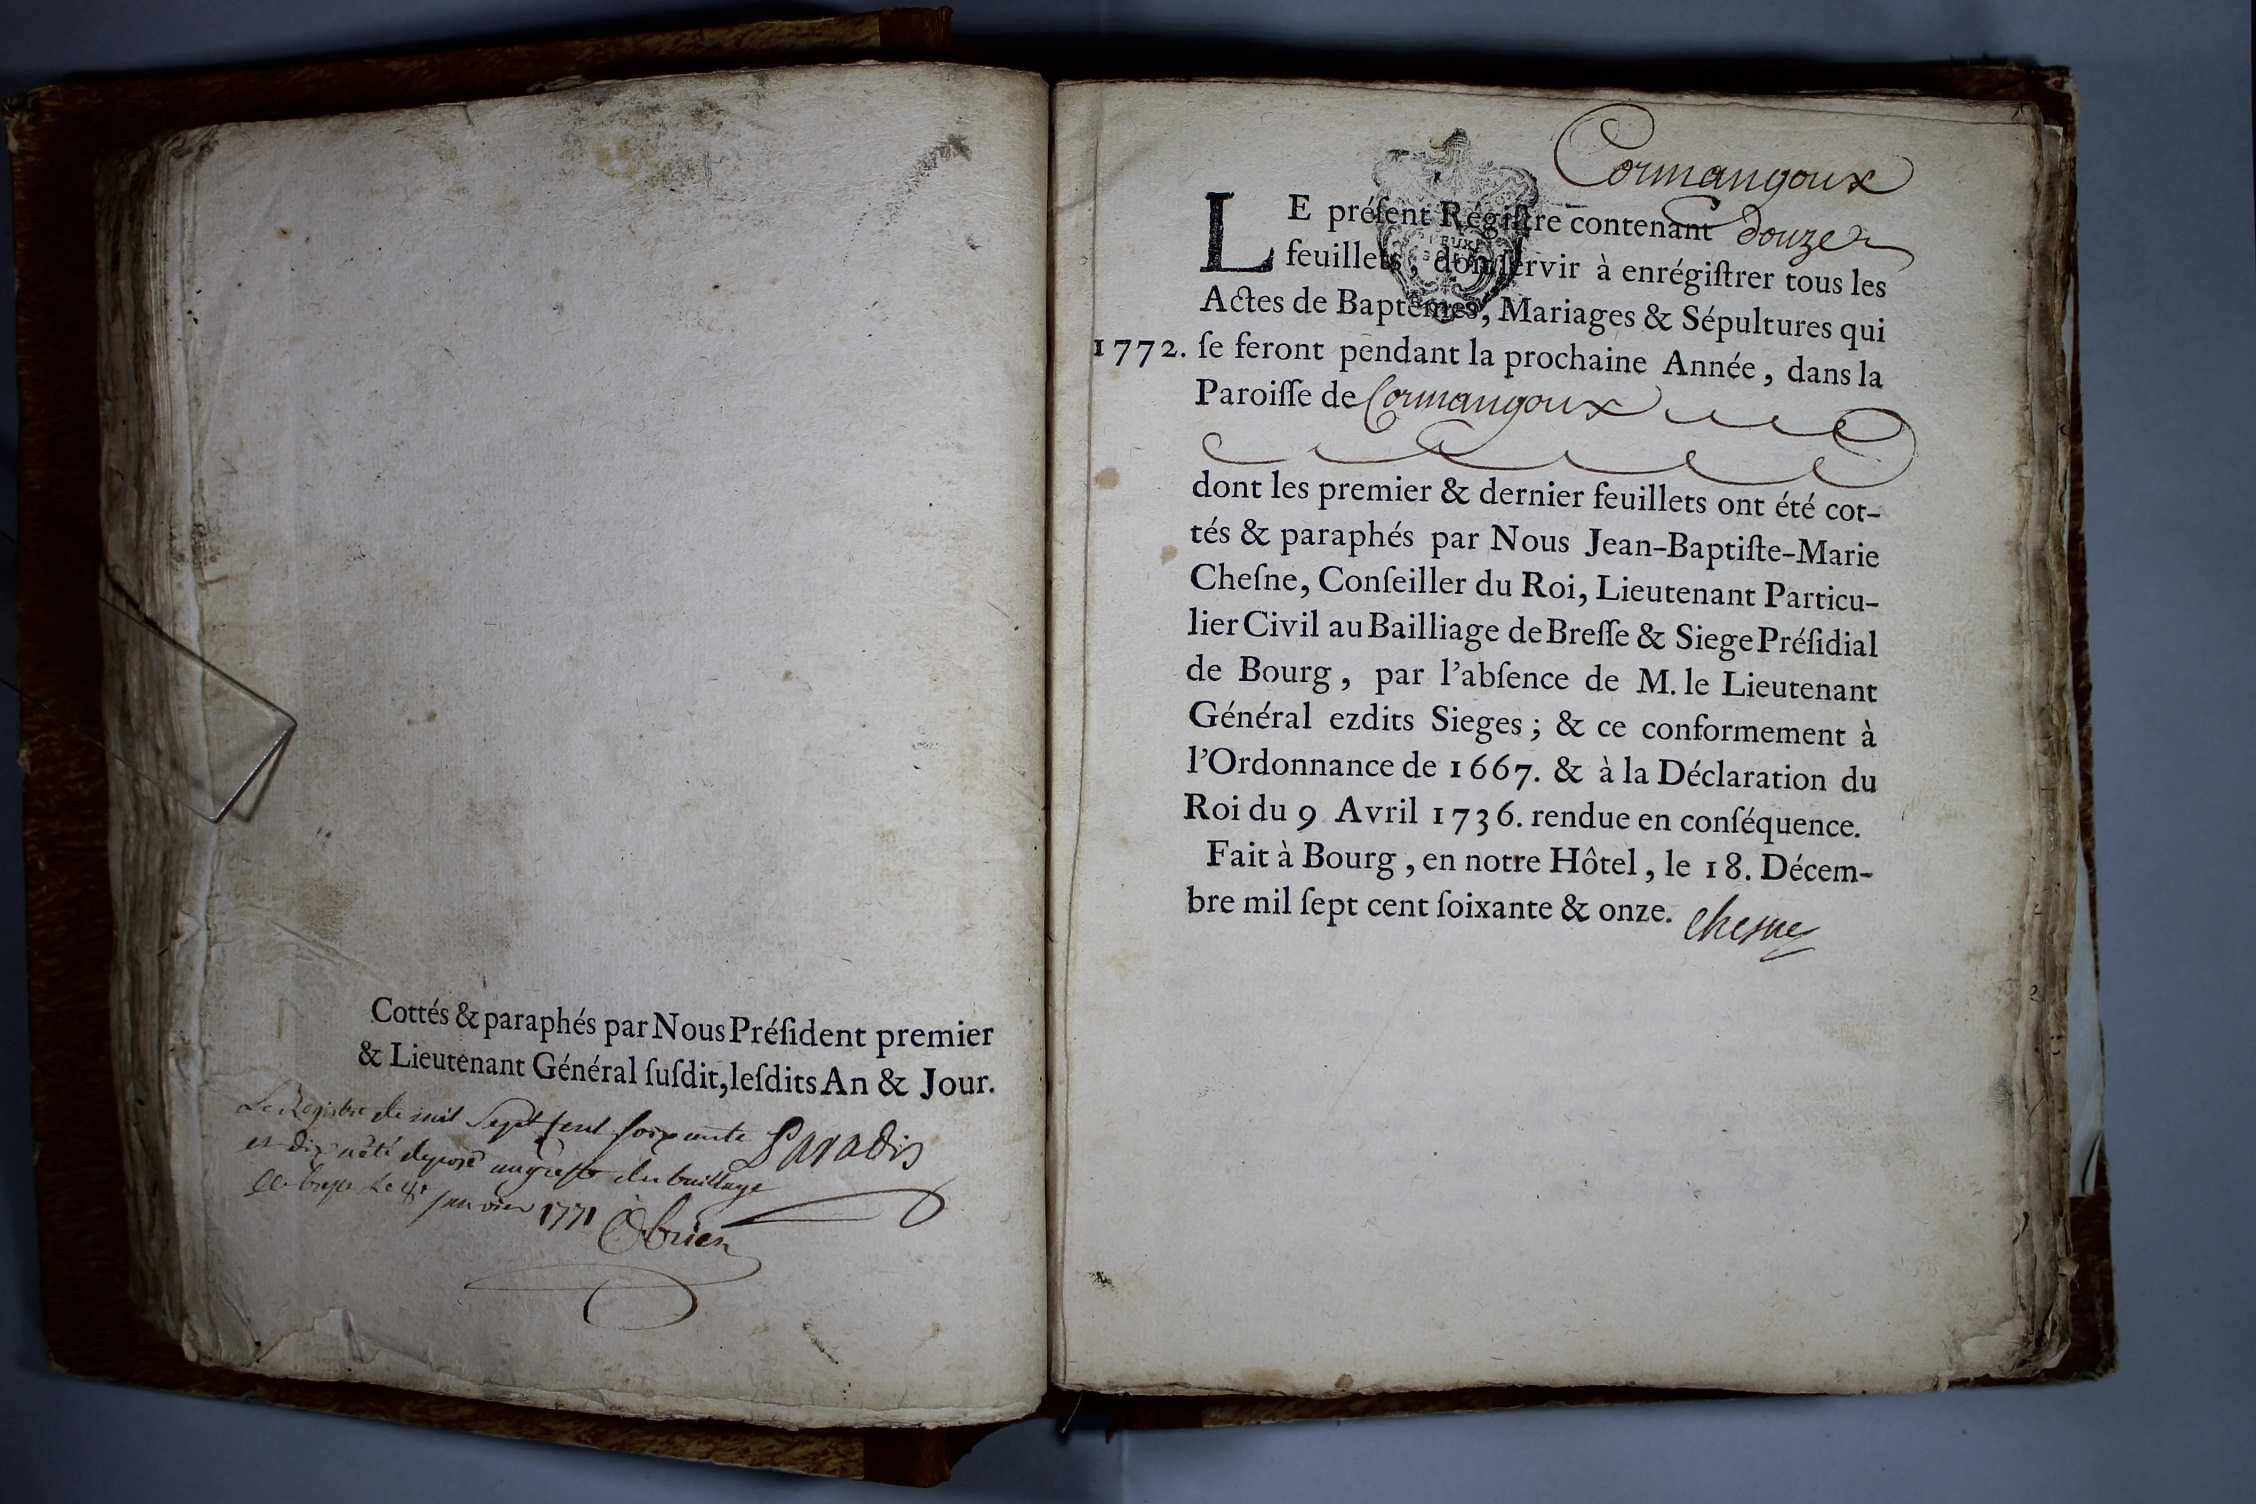 Cottés & paraphés par Nous Préſident premier
& Lieutenant Général ſuſdit, leſdits An & Jour.
Le Registre de mil Sept Cent soixante
Paradis
et dix a été deposé au greffe du bailliage
de bresse Le 8e janvier 1771 Obrien
Cormangoux
LE préſent Régiſtre contenant douze
feuillets, doit ſervir à enrégiſtrer tous les
Actes de Baptêmes, Mariages & Sépultures qui
1772. ſe feront pendant la prochaine Année, dans la
Paroiſſe de Cormangoux
dont les premier & dernier feuillets ont été cot-
tés & paraphés par Nous Jean-Baptiſte-Marie
Cheſne, Conſeiller du Roi, Lieutenant Particu-
lier Civil au Bailliage de Breſſe & Siege Préſidial
de Bourg, par l'abſence de M. le Lieutenant
Général ezdits Sieges; & ce conformement à
l'Ordonnance de 1667. & à la Déclaration du
Roi du 9 Avril 1736. rendue en conſéquence.
Fait à Bourg, en notre Hôtel, le 18. Décem-
bre mil ſept cent ſoixante & onze. Chesne